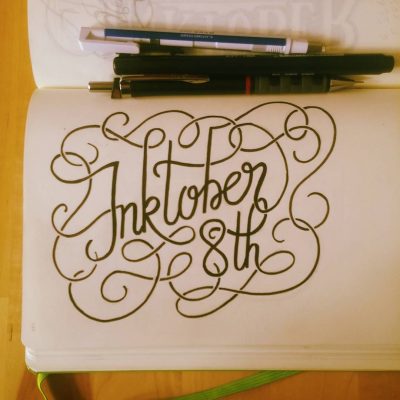 Inktober
8th